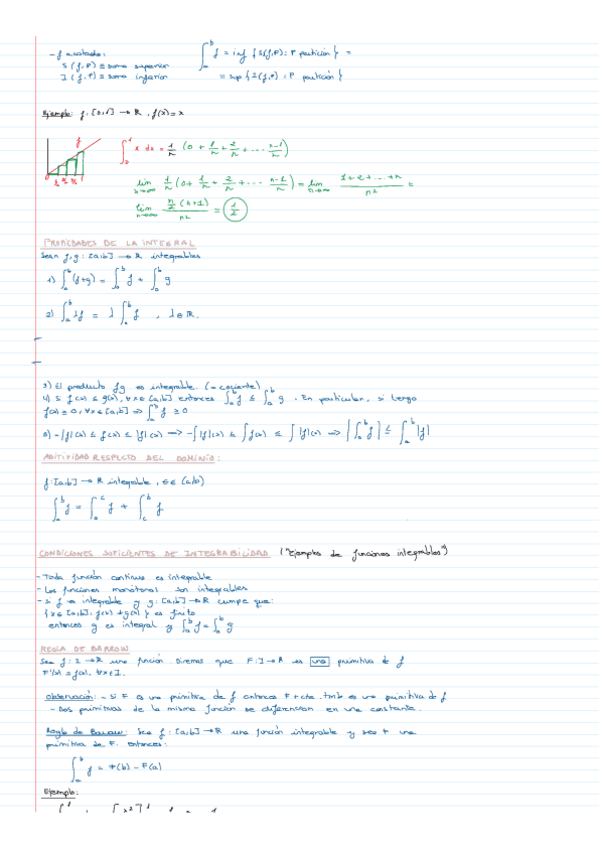 - f acotado:
S(f,P) ≡ suma superior
I(f,P) ≡ suma inferior
∫_a^b f = inf {S(f,P): P partición} =
= sup {I(f,P): P partición}
Ejemplo: f: [0,1] → ℝ, f(x) = x
f
∫_0^1 x dx = 1/n (0 + 1/n + 2/n + ... n-1/n)
lim n→∞ 1/n (0 + 1/n + 2/n + ... n-1/n) = lim n→∞ 1+2+...+n / n² =
lim n→∞ n/2 (n+1) / n² = 1/2
PROPIEDADES DE LA INTEGRAL
Sean f,g: [a,b] → ℝ integrables
1) ∫_a^b (f+g) = ∫_a^b f + ∫_a^b g
2) ∫_a^b λf = λ ∫_a^b f , λ ∈ ℝ.
3) El producto fg es integrable. (≠ cociente)
4) Si f(x) ≤ g(x), ∀x ∈ [a,b] entonces ∫_a^b f ≤ ∫_a^b g. En particular, si luego
f(x) ≥ 0, ∀x ∈ [a,b] ⇒ ∫_a^b f ≥ 0
5) -|f|(x) ≤ f(x) ≤ |f|(x) ⇒ -∫|f|(x) ≤ ∫f(x) ≤ ∫|f|(x) ⇒ |∫_a^b f| ≤ ∫_a^b |f|
ADITIVIDAD RESPECTO DEL DOMINIO:
f: [a,b] → ℝ integrable, c ∈ (a,b)
∫_a^b f = ∫_a^c f + ∫_c^b f
CONDICIONES SUFICIENTES DE INTEGRABILIDAD ("Ejemplos de funciones integrables")
- Toda función continua es integrable
- Las funciones monótonas son integrables
- Si f es integrable y g: [a,b] → ℝ cumple que:
{x ∈ [a,b]: f(x) ≠ g(x)} es finito
entonces g es integral y ∫_a^b f = ∫_a^b g
REGLA DE BARROW
Sea f: I → ℝ una función. Diremos que F: I → ℝ es una primitiva de f
F'(x) = f(x), ∀x ∈ I.
Observación: - Si F es una primitiva de f entonces F + cte. tmb es una primitiva de f
- Dos primitivas de la misma función se diferencian en una constante.
Regla de Barrow: Sea f: [a,b] → ℝ una función integrable y sea F una
primitiva de F. entonces:
∫_a^b f = F(b) - F(a)
Ejemplo: